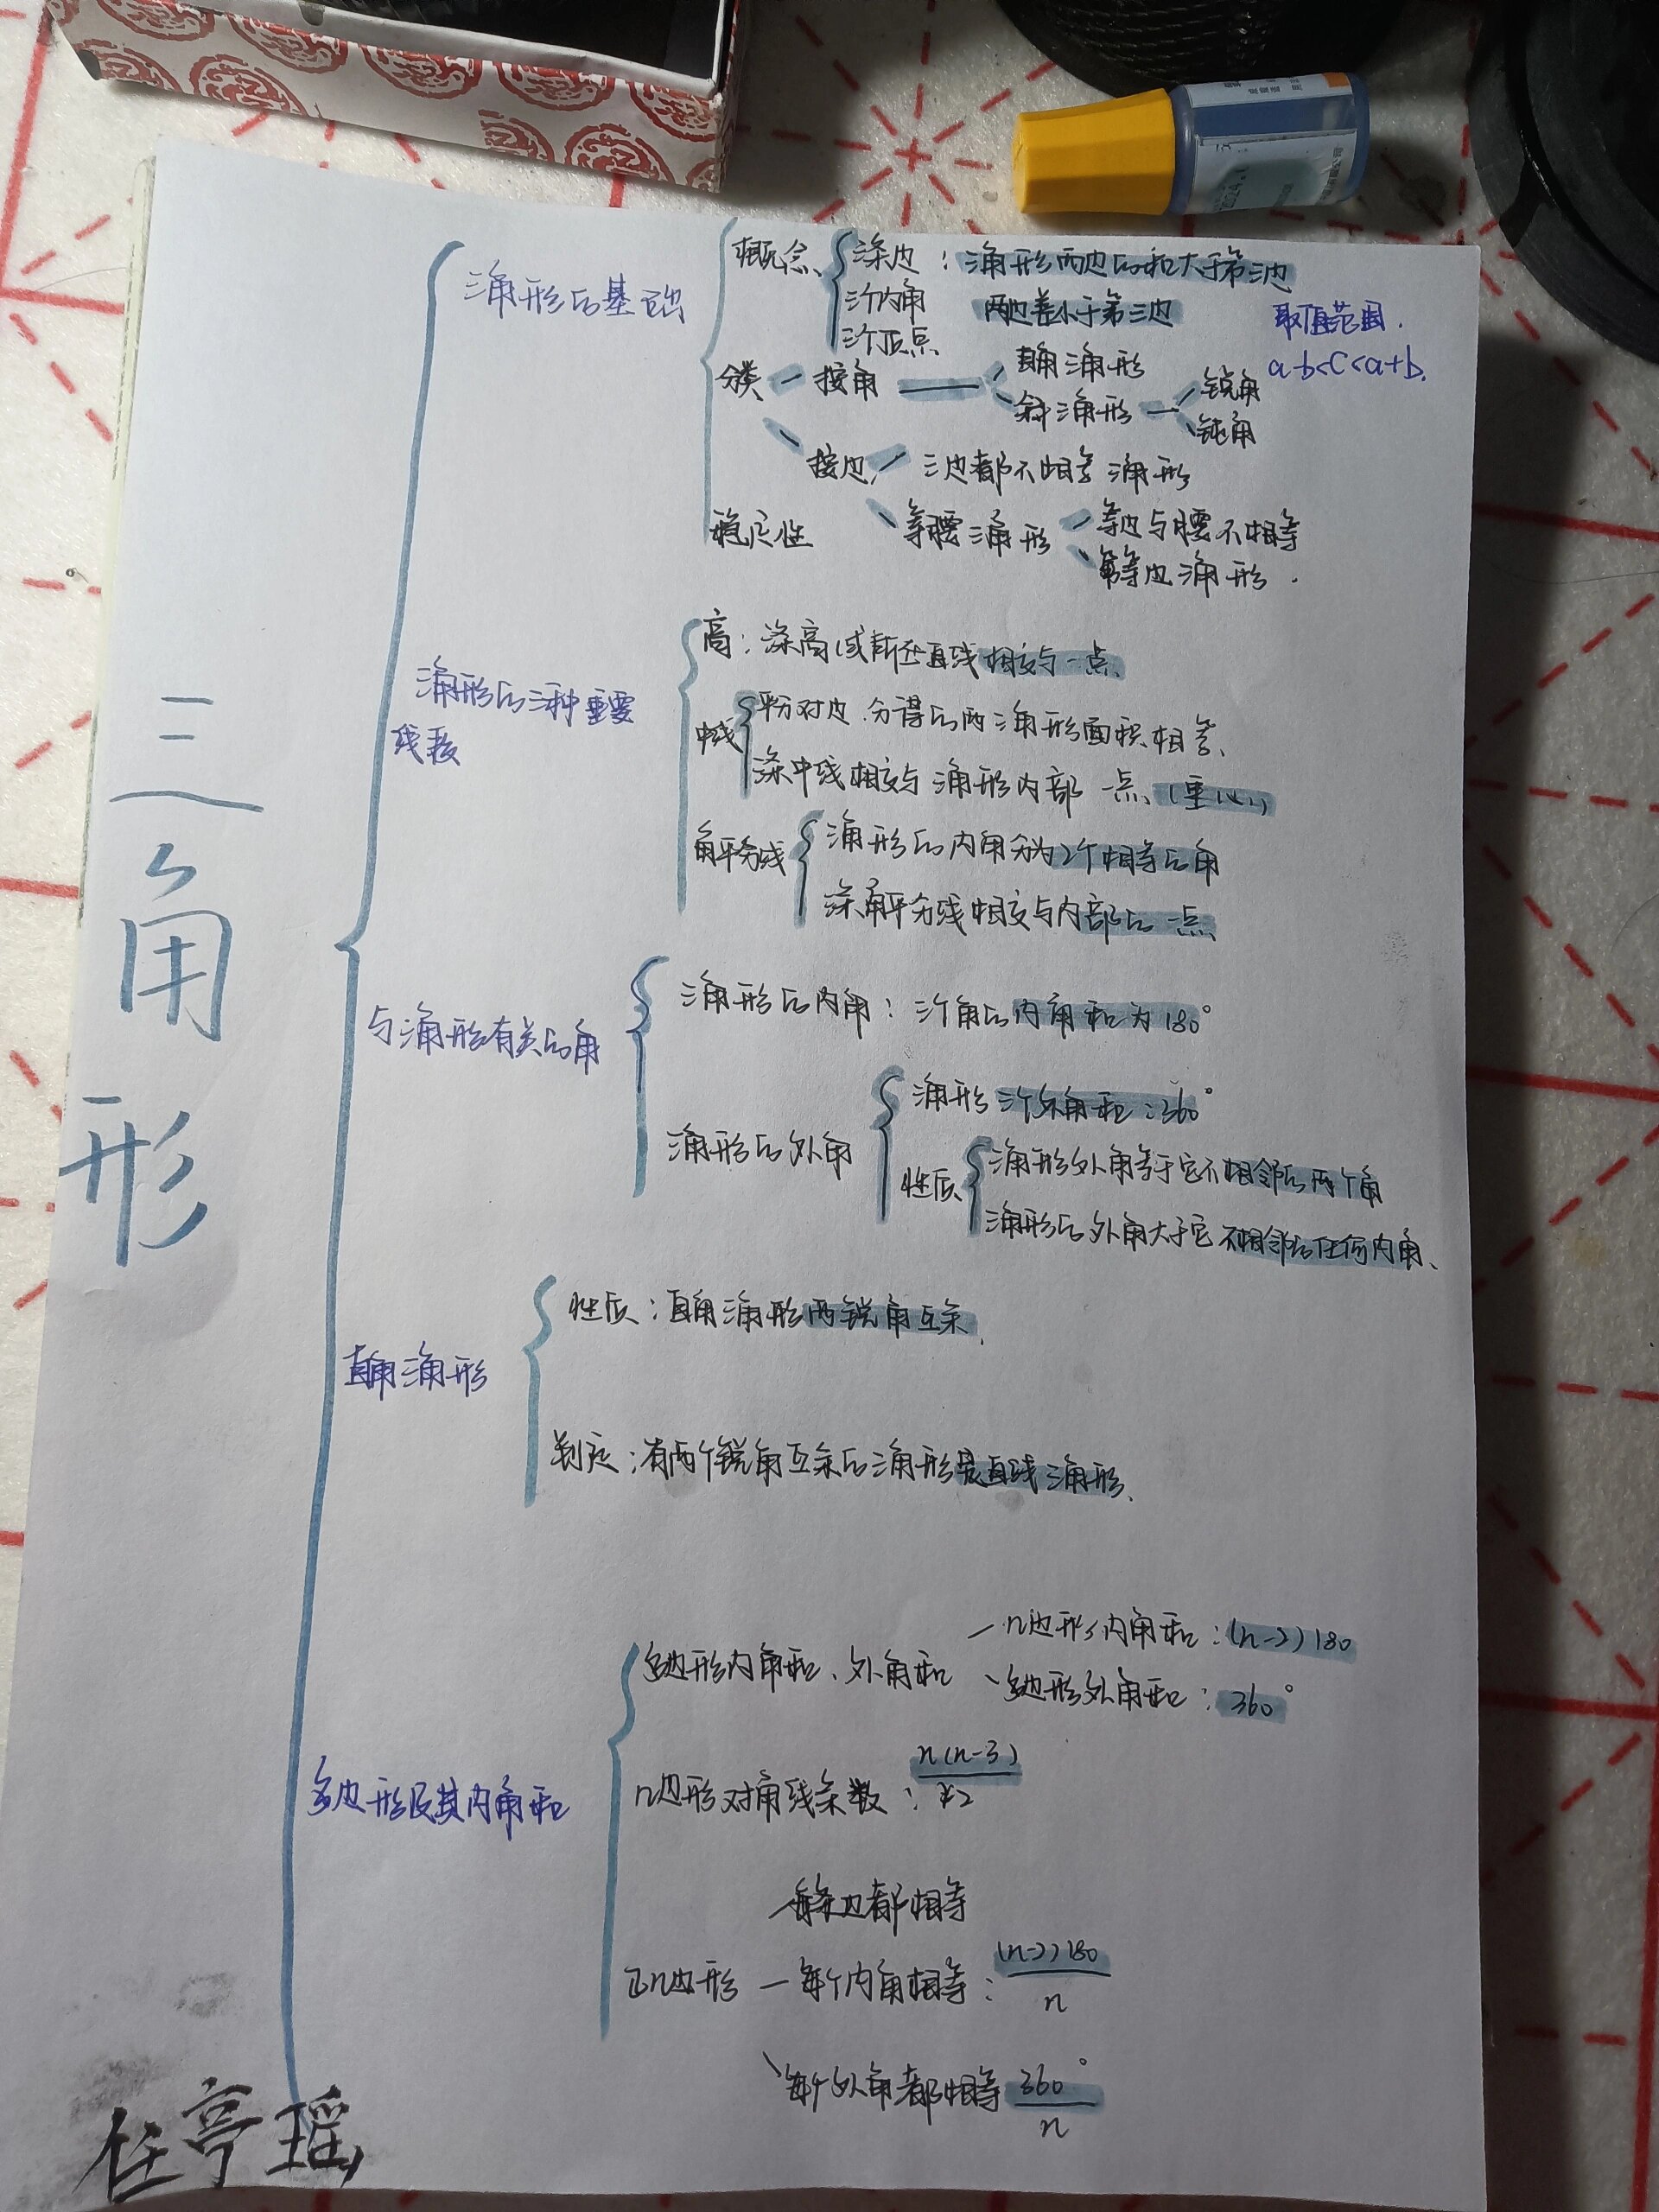 三角形
三角形的基础
概念
三条边：三角形两边的和大于第三边
两边差小于第三边
三个内角
三个顶点
取值范围.
a-b<c<a+b.
分类
按角
直角三角形
斜三角形
锐角
钝角
按边
三边都不相等三角形
等腰三角形
等边与腰不相等
等边三角形.
稳定性
三角形的三种重要
线段
高：三条高(或所在直线相交与一点
中线
平分对边.分得的两三角形面积相等、
三条中线相交与三角形内部一点(重心)
角平分线
三角形的内角分为2个相等的角
三条角平分线相交与内部的一点
与三角形有关的角
三角形的内角：三个角的内角和为180°
三角形的外角
三角形三个外角和:360°
性质
三角形外角等于它不相邻的两个角
三角形的外角大于它不相邻的任何内角、
直角三角形
性质：直角三角形两锐角互余.
判定：有两个锐角互余的三角形是直线三角形、
多边形及其内角和
多边形内角和、外角和
n边形内角和：(n-2)180
多边形外角和：360°
n边形对角线条数：n(n-3)/2
正n边形
每条边都相等
每个内角相等：(n-2)180/n
每个外角都相等360°/n
任亭瑶